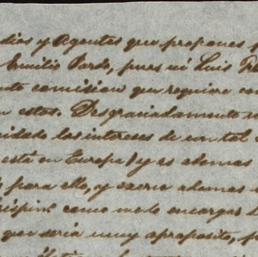 dios y Agentes que propones p
Emilio Pardo, pues ni Luis Fr
comision que requiere co
n estos. Desgraciadamente
cuidado los intereses de un tal
está en Europa y es ademas
para ello, y sacrio ademas
como me lo encargas
que seria muy aproposito, p